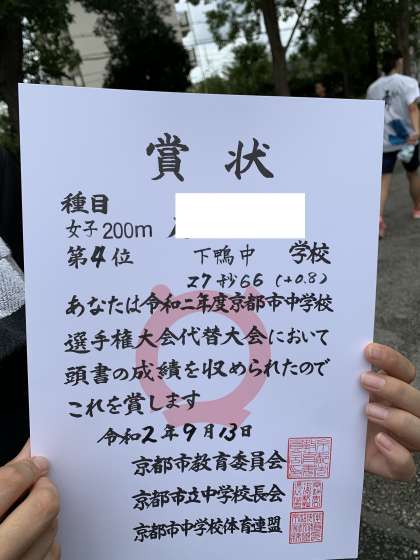 賞状
種目
女子200m
第4位
下鴨中 学校
27秒66 (+0.8)
あなたは令和二年度京都市中学校
選手権大会代替大会において
頭書の成績を収められたので
これを賞します
令和2年9月13日
京都市教育委員会
京都市立中学校長会
京都市中学校体育連盟